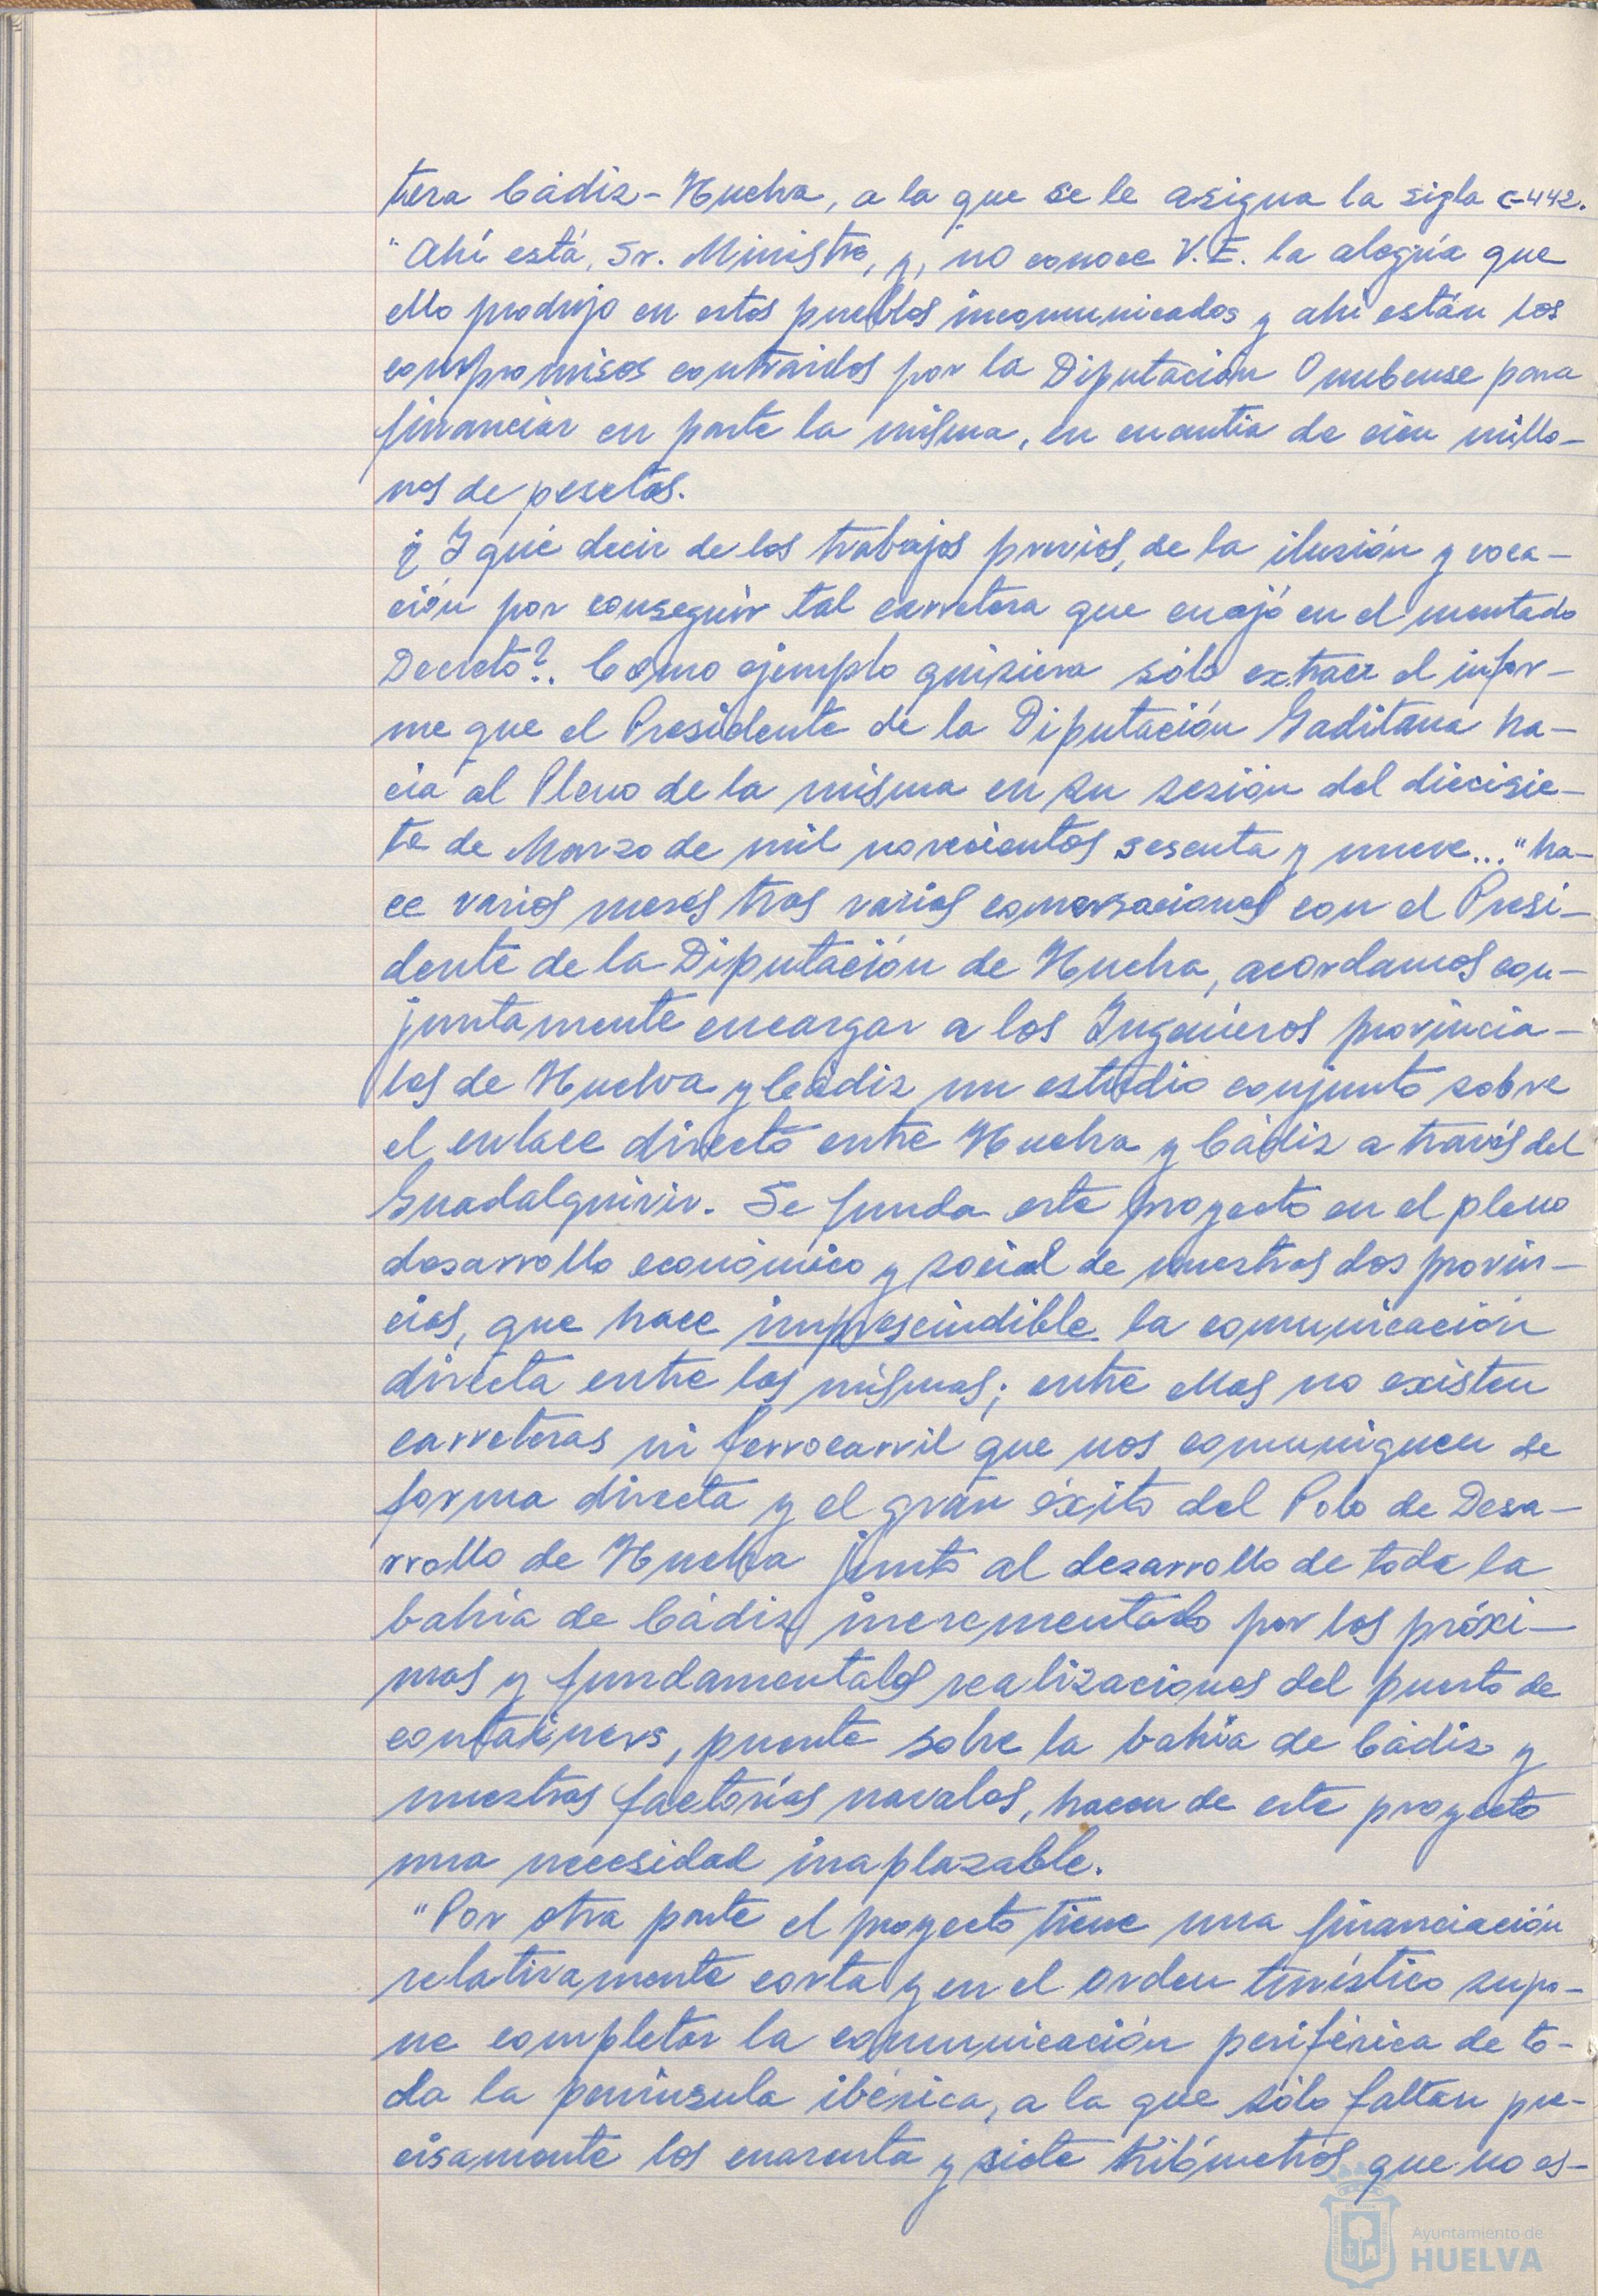 tera Cádiz-Huelva, a la que se le asigna la sigla C-442.
"Ahí está, Sr. Ministro, y, no conoce V.E. la alegría que
ello produjo en estos pueblos incomunicados y ahí están los
compromisos contraídos por la Diputación Onubense para
financiar en parte la misma, en cuantía de cien millo-
nes de pesetas.
¿Y qué decir de los trabajos previos, de la ilusión y voca-
ción por conseguir tal carretera que cuajó en el mentado
Decreto?. Como ejemplo quisiera sólo extraer el infor-
me que el Presidente de la Diputación Gaditana ha-
cía al Pleno de la misma en su sesión del diecisie-
te de Marzo de mil novecientos sesenta y nueve... "ha-
ce varios meses tras varias conversaciones con el Presi-
dente de la Diputación de Huelva, acordamos con-
juntamente encargar a los Ingenieros provincia-
les de Huelva y Cádiz un estudio conjunto sobre
el enlace directo entre Huelva y Cádiz a través del
Guadalquivir. Se funda este proyecto en el pleno
desarrollo económico y social de nuestras dos provin-
cias, que hace imprescindible la comunicación
directa entre las mismas; entre ellas no existen
carreteras ni ferrocarril que nos comuniquen de
forma directa y el gran éxito del Polo de Desa-
rrollo de Huelva junto al desarrollo de toda la
bahía de Cádiz incrementado por los próxi-
mos y fundamentales realizaciones del puerto de
containers, puente sobre la bahía de Cádiz y
nuestras factorías navales, hacen de este proyecto
una necesidad inaplazable.
"Por otra parte el proyecto tiene una financiación
relativamente corta y en el orden turístico supo-
ne completar la comunicación periférica de to-
da la península ibérica, a la que sólo faltan pre-
cisamente los cuarenta y siete kilómetros que no es-
Ayuntamiento de
HUELVA